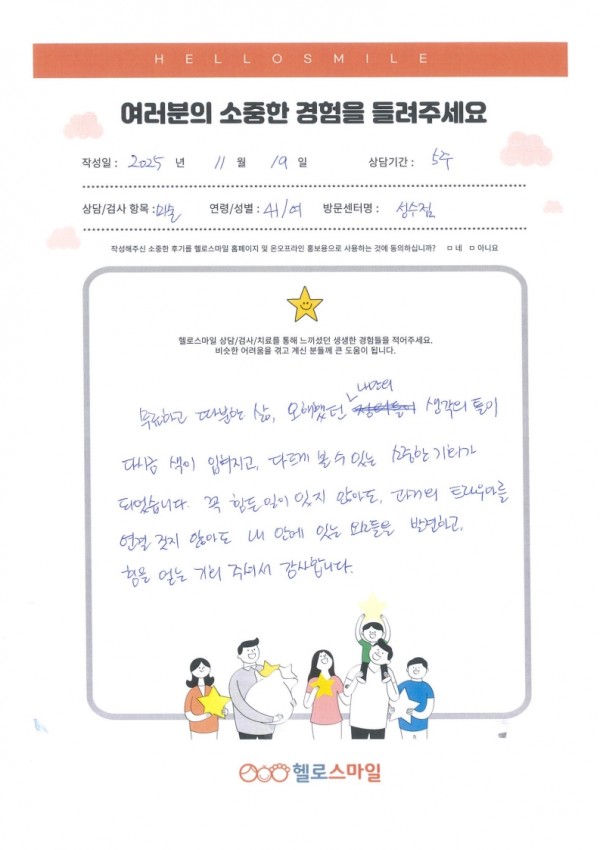 HELLOSMILE
여러분의 소중한 경험을 들려주세요
작성일 : 2025 년 11 월 19 일 상담기간 : 5주
상담/검사 항목 : 미술 연령/성별 : 41/여 방문센터명 : 성수점
작성해주신 소중한 후기를 헬로스마일 홈페이지 및 온오프라인 홍보용으로 사용하는 것에 동의하십니까? ㅁ 네 ㅁ 아니요
헬로스마일 상담/검사/치료를 통해 느끼셨던 생생한 경험들을 적어주세요.
비슷한 어려움을 겪고 계신 분들께 큰 도움이 됩니다.
나만의
무료하고 따분한 삶, 오해했던 생각의 틀이
다시금 색이 입혀지고, 다르게 볼 수 있는 소중한 기회가
되었습니다. 꼭 힘든 일이 있지 않아도, 과거의 트라우마를
연결 짓지 않아도 내 안에 있는 것들을 발견하고,
힘을 얻는 기회 주셔서 감사합니다.
헬로스마일